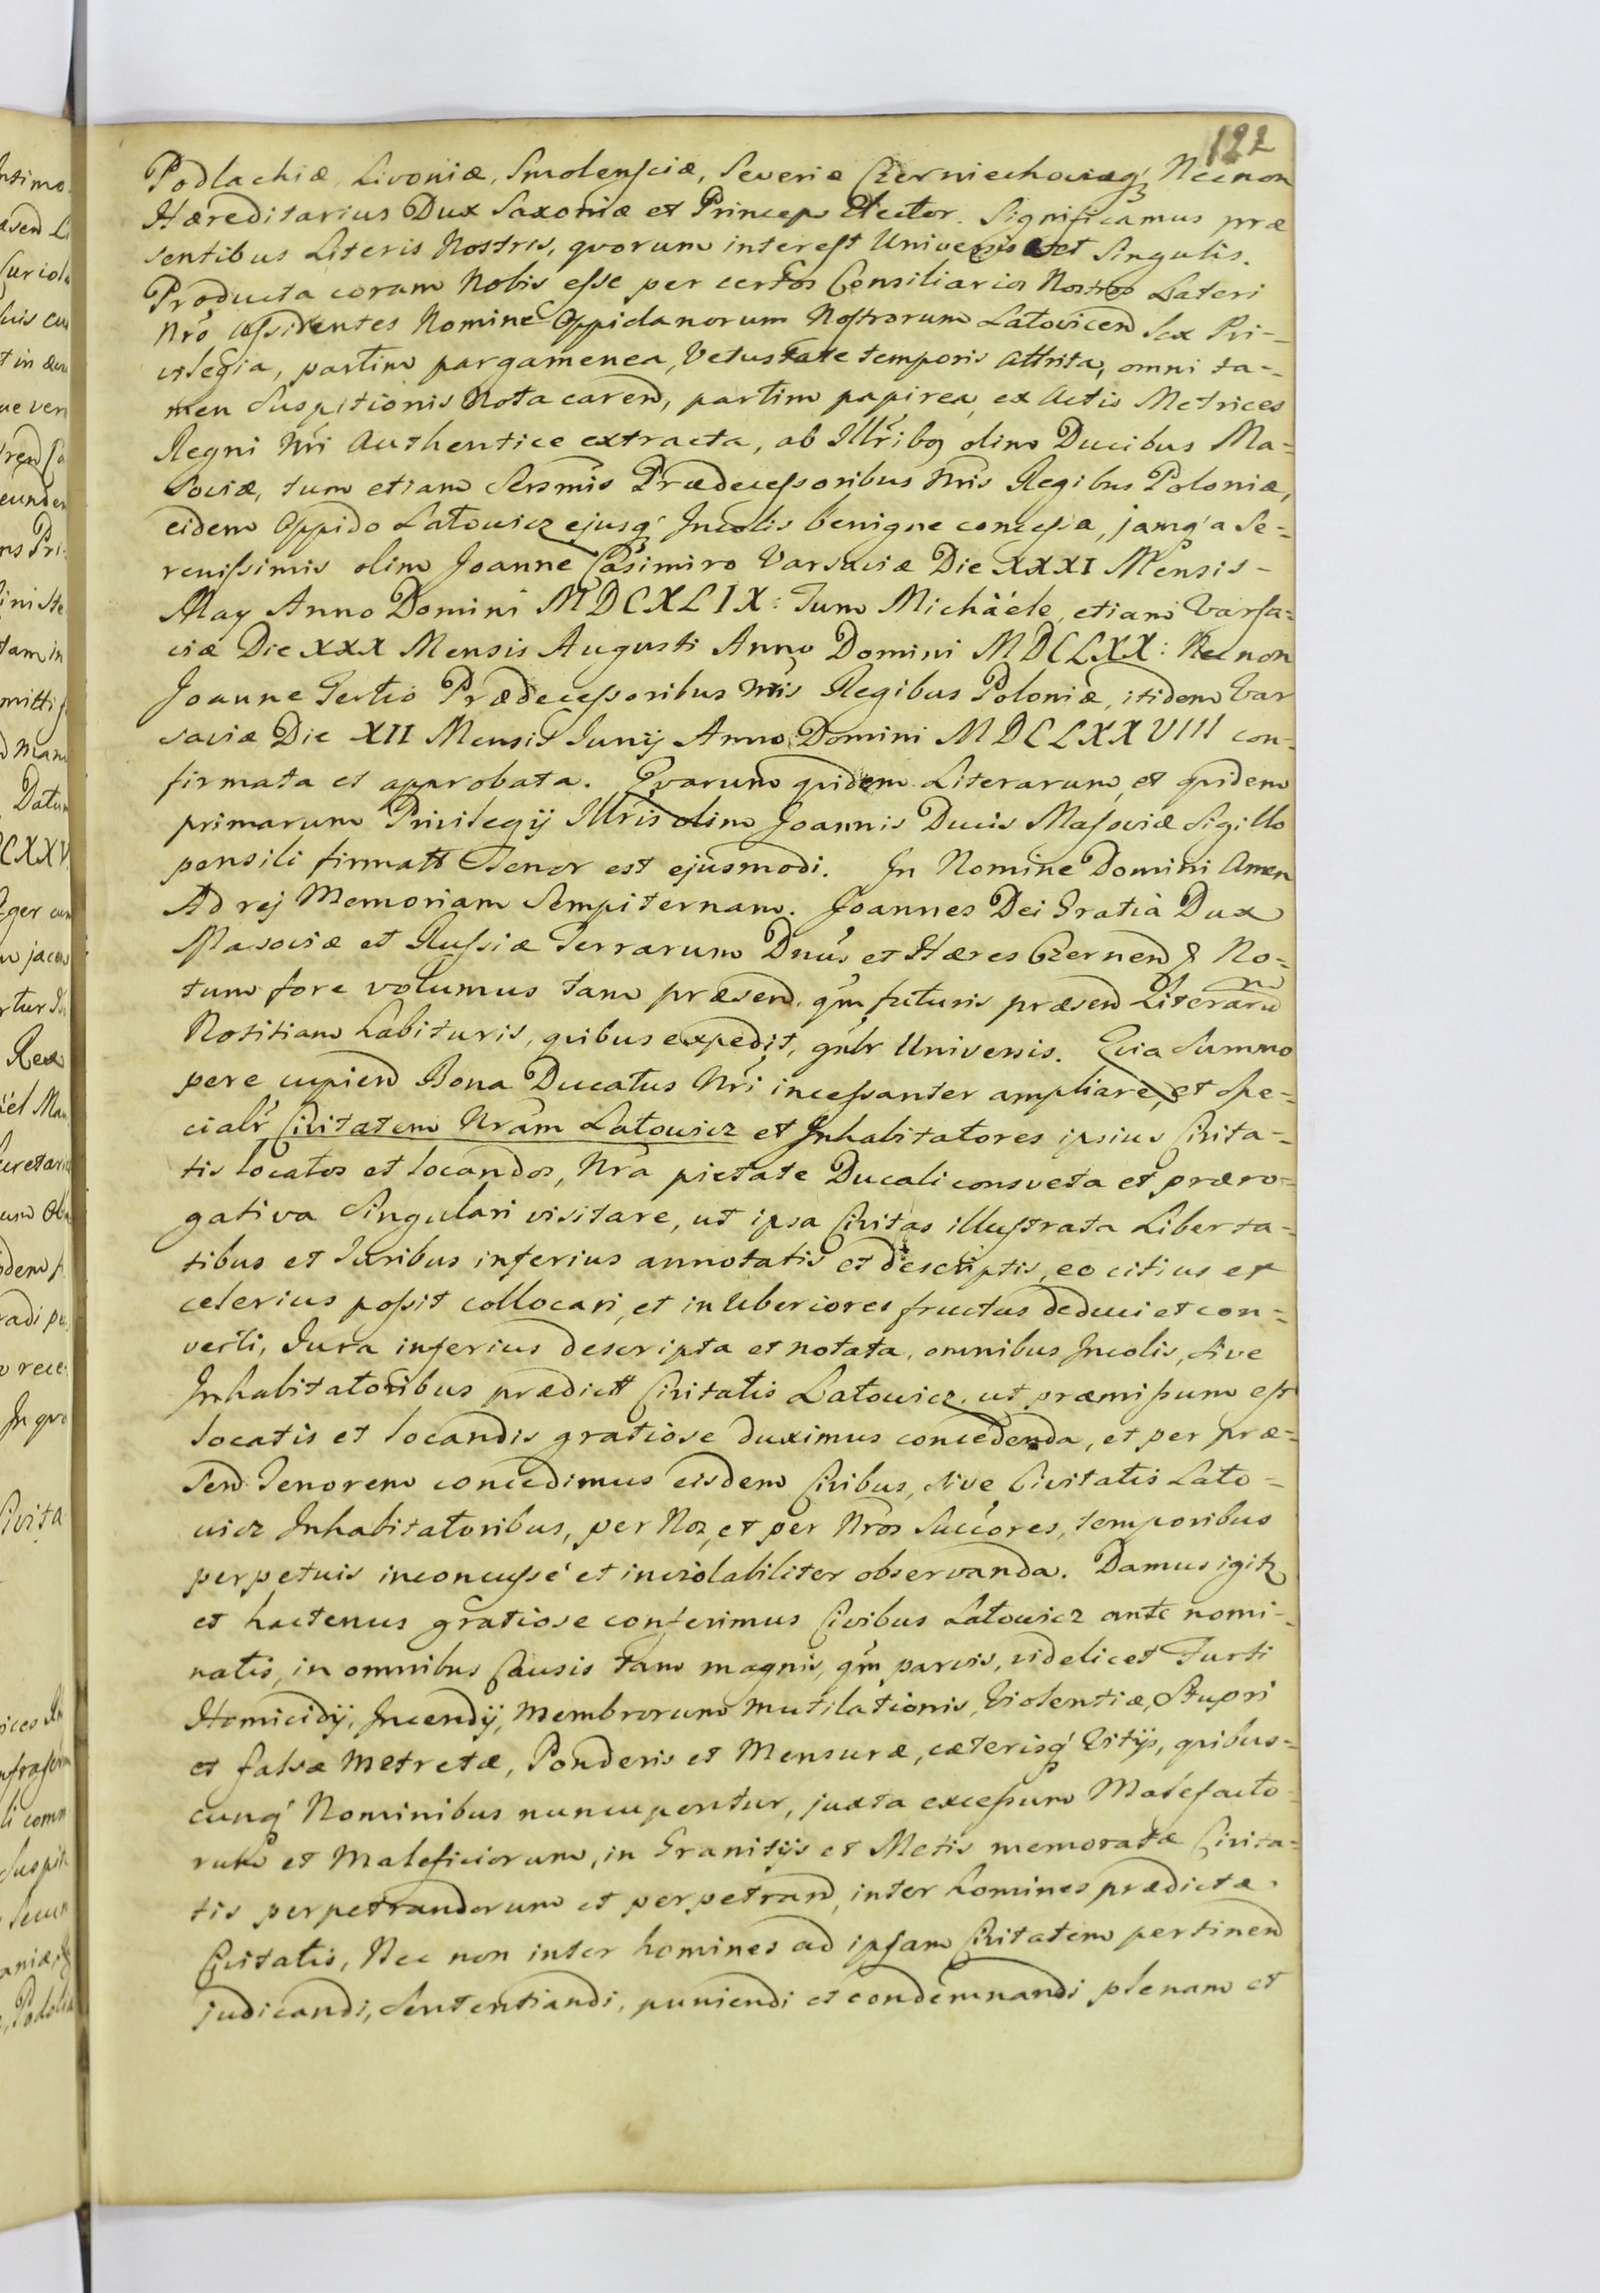 122
Podlachiæ, Livoniæ, Smolensciæ, Severiæ Czerniechoviæq́ꝫ Necnon
Hæreditarius Dux Saxoniæ et Princeps Elector. Significamus præ
sentibus Literis Nostris, quorum interest Universis et Singulis.
Producta coram Nobis esse per certos Consiliarios Nostros Lateri
Nrŏ assidentes Nomine Oppidanorum Nostrorum Latovicen̄ Sex Pri-
vilegia, partim pargamenea, Vetustate temporis attrita, omni ta-
men Suspitionis Nota caren̄, partim papirea, ex Actis Metrices
Regni Nri Authentice extracta, ab Illr̄ibꝫ olim Ducibus Ma=
soviæ, tum etiam Serm̄is Prædecessoribus Nris Regibus Poloniæ,
eidem Oppido Latowicz ejusq́ꝫ Incolis benigne concessa, jamq́ a Se=
renissimis olim Joanne Casimiro Varsaviæ Die XXXI Mensis-
May Anno Domini MDCXLIX: Tum Michäele, etiam Varsa=
viæ Die XXX Mensis Augusti Anno Domini MDCLXX: Necnon
Joanne Tertio Prædecessoribus Nris Regibus Poloniæ, itidem Var
saviæ Die XII Mensis Junij Anno Domini MDCLXXVIII con-
firmata et approbata. Qvarum qvidem Literarum, et qvidem
primarum Privilegij Illr̄is olim Joannis Ducis Masoviæ Sigillo
pensili firmatt Tenor est ejusmodi. In Nomine Domini Amen
Ad rej Memoriam Sempiternam. Joannes Dei Gratiâ Dux
Masoviæ et Russiæ Terrarum Dnus et Hæres Czernen̄ & No=
tum fore volumus tam præsen̄. qm̄ futuris præsen̄ Literaru
m
Notitiam habituris, qvibus expedit, gnlr Universis. Qvia Summo
pere cupien̄ Bona Ducatus Nri incessanter ampliare, et Spe-
cialr̄ Civitatem Nram Latowicz et Inhabitatores ipsius Civita-
tis locatos et locandos, Nra pietate Ducali consveta et præro=
gativa Singulari visitare, ut ipsa Civitas illustrata Liberta-
tibus et Juribus inferius annotatis et descriptis, eo citius et
celerius possit collocari, et in Uberiores fructus deduci et con=
verti, Jura inferius descripta et notata, omnibus Incolis, sive
Inhabitatoribus prædictt Civitatis Latowicz, ut præmissum est
locatis et locandis gratiose duximus concedenda, et per præ-
sen̄ Tenorem concedimus eisdem Civibus, sive Civitatis Lato-
wicz Inhabitatoribus, per Nos, et per Nros Succores, temporibus
perpetuis inconcussé et inviolabiliter observanda. Damus igitꝫ
et hactenus gratiose conferimus Civibus Latowicz ante nomi-
natis, in omnibus Causis tam magnis, qm̄ parvis, videlicet Furti
Homicidij, Incendij, Membrorum mutilationis, Violentiæ, Stupri
et falsæ Metretæ, Ponderis et Mensuræ, cæterisq́ꝫ Vitijs, qvibus=
cunq́ꝫ Nominibus nuncupentur, juxta excessum Malefacto-
rum et Maleficiorum, in Granitijs et Metis memoratæ Civita-
tis perpetrandorum et perpetran̄, inter homines prædictæ.
Civitatis, Nec non inter homines ad ipsam Civitatem pertinen̄
judicandi, Sententiandi, puniendi et condemnandi plenam et